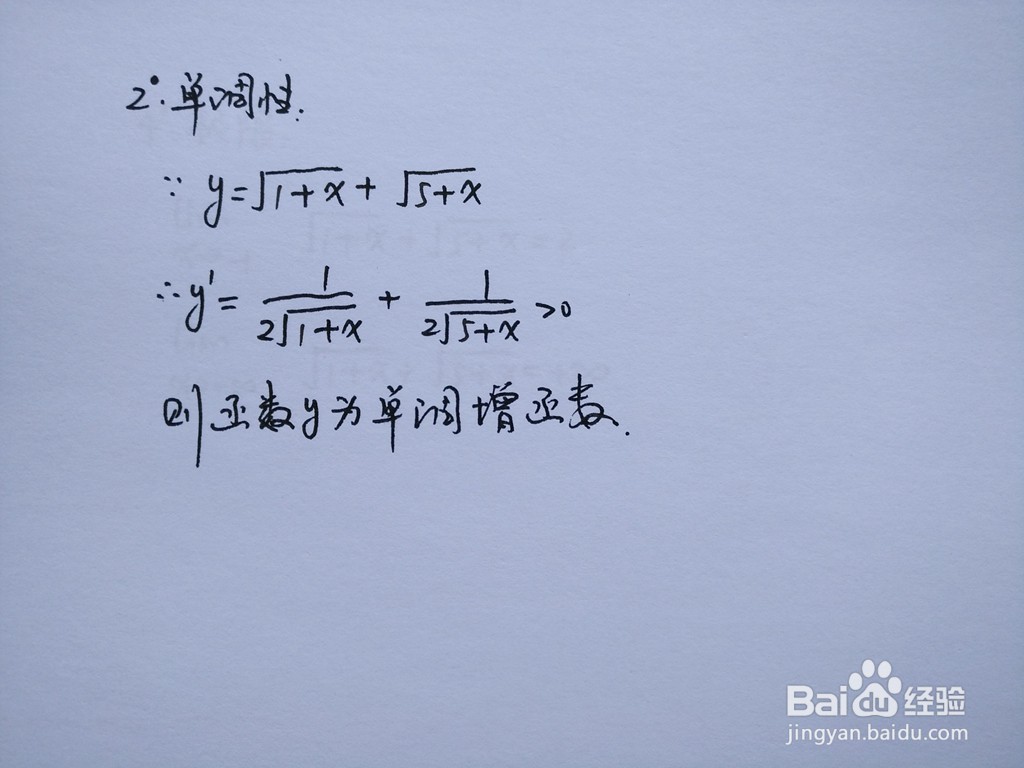 2°.单调性.
∵ y=√(1+x) + √(5+x)
∴ y'= 1/(2√(1+x)) + 1/(2√(5+x)) >0
则函数y为单调增函数.
Bai 经验
jingyan.baidu.com